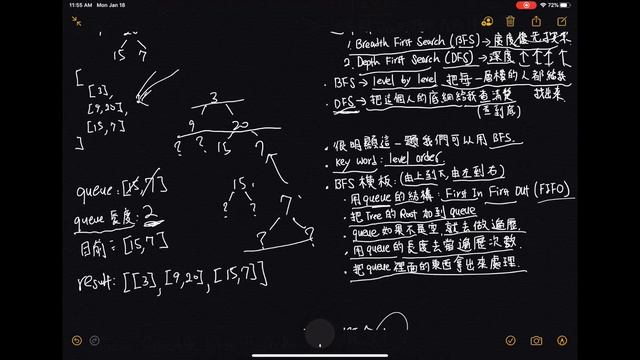 11:55 AM Mon Jan 18
72%
20
15 7
[
[3],
[9,20],
[15,7]
]
3
9 20
? ? 15 7
15 7
? ? ? ?
queue: [15,7]
queue 長度: 2
目前 = [15,7]
result: [[3], [9,20], [15,7]]
1. Breadth First Search (BFS) → 廣度優先搜尋
2. Depth First Search (DFS) → 深度 ↑ ↑ ↑ ↑
• BFS → level by level 把每一層樓的人都給我找出來
• DFS → 把這個人的底細給我查清楚
(查到底)
• 很明顯這一題我們可以用 BFS.
• key word: level order.
• BFS 模板: (由上到下, 由左到右)
• 用 queue 的結構: First In First Out (FIFO)
• 把 Tree 的 Root 加到 queue
• queue 如果不是空, 就去做遍歷
• 用 queue 的長度去當遍歷次數
• 把 queue 裡面的東西拿出來處理.